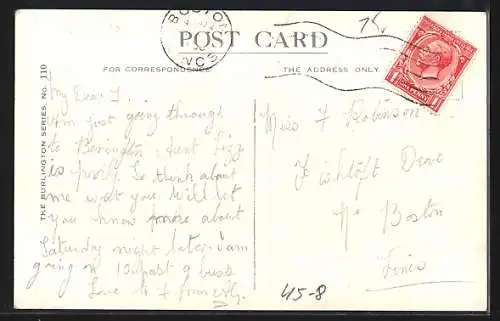 BOSTON
POST CARD
FOR CORRESPONDENCE
THE ADDRESS ONLY
THE BURLINGTON SERIES, No. 110
My Dear F.
am just going through
to Benington, Aunt Lizz
is poorly. So think about
me wet you. Will let
you know more about
Saturday night later. I am
going on 10 past 9 buss.
Love to F from
Miss F Robinson
Fishtoft Drove
Nr Boston
Lincs
45-8